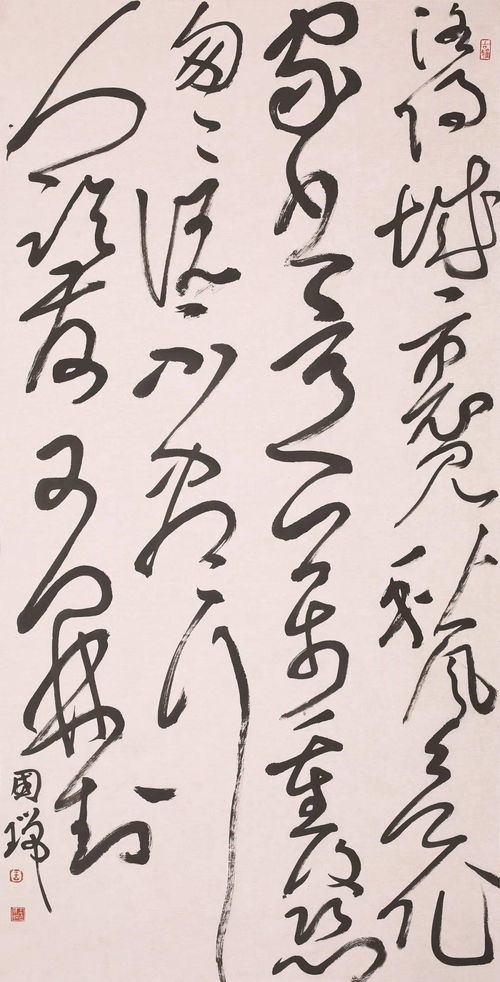 洛陽城裏見秋風欲作
家書意萬重復恐
匆匆說不盡行
人臨發又開封
國瑞